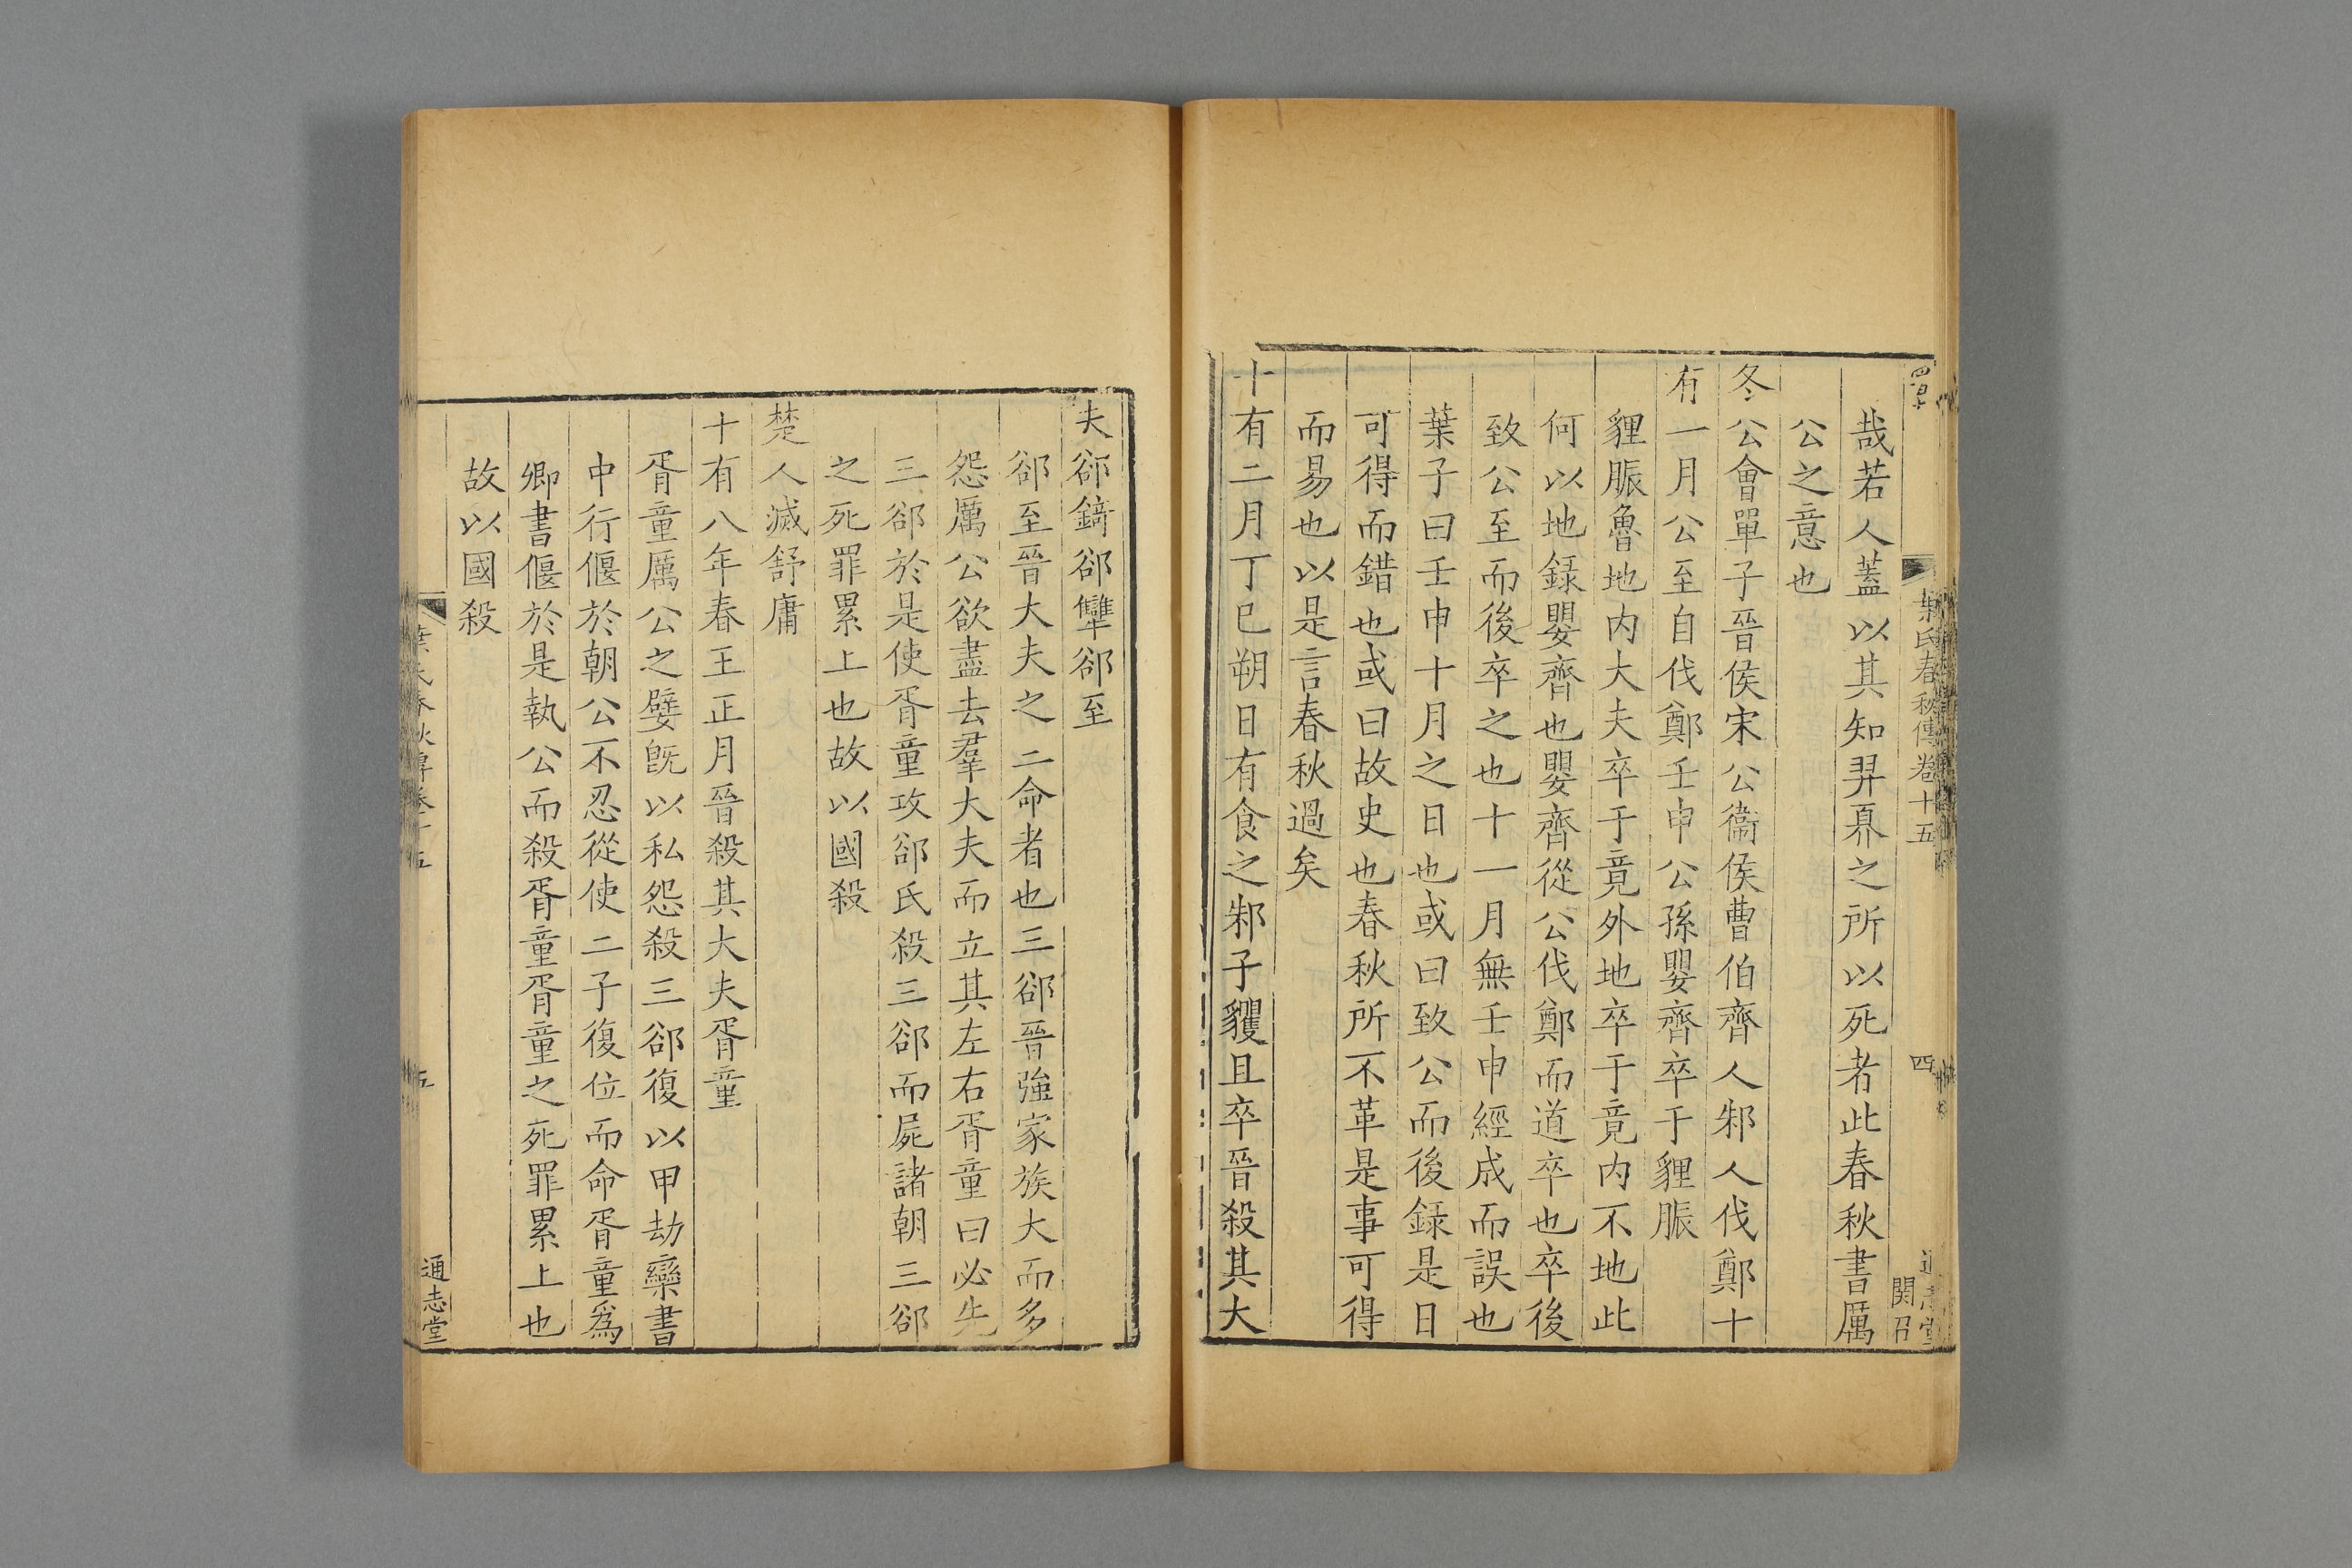 葉氏春秋傳卷十五
四
関召
哉若人蓋以其知羿奡之所以死者此春秋書厲
公之意也
冬公會單子晉侯宋公衞侯曹伯齊人邾人伐鄭十
有一月公至自伐鄭壬申公孫嬰齊卒于貍脤
貍脤魯地内大夫卒于竟外地卒于竟内不地此
何以地録嬰齊也嬰齊從公伐鄭而道卒也卒後
致公至而後卒之也十一月無壬申經成而誤也
葉子曰壬申十月之日也或曰致公而後録是日
可得而錯也或曰故史也春秋所不革是事可得
而易也以是言春秋過矣
十有二月丁巳朔日有食之邾子貜且卒晉殺其大
夫郤錡郤犫郤至
郤至晉大夫之二命者也三郤晉強家族大而多
怨厲公欲盡去羣大夫而立其左右胥童曰必先
三郤於是使胥童攻郤氏殺三郤而屍諸朝三郤
之死罪累上也故以國殺
楚人滅舒庸
十有八年春王正月晉殺其大夫胥童
胥童厲公之嬖旣以私怨殺三郤復以甲劫欒書
中行偃於朝公不忍從使二子復位而命胥童爲
卿書偃於是執公而殺胥童胥童之死罪累上也
故以國殺
葉氏春秋傳卷十五
五
通志堂